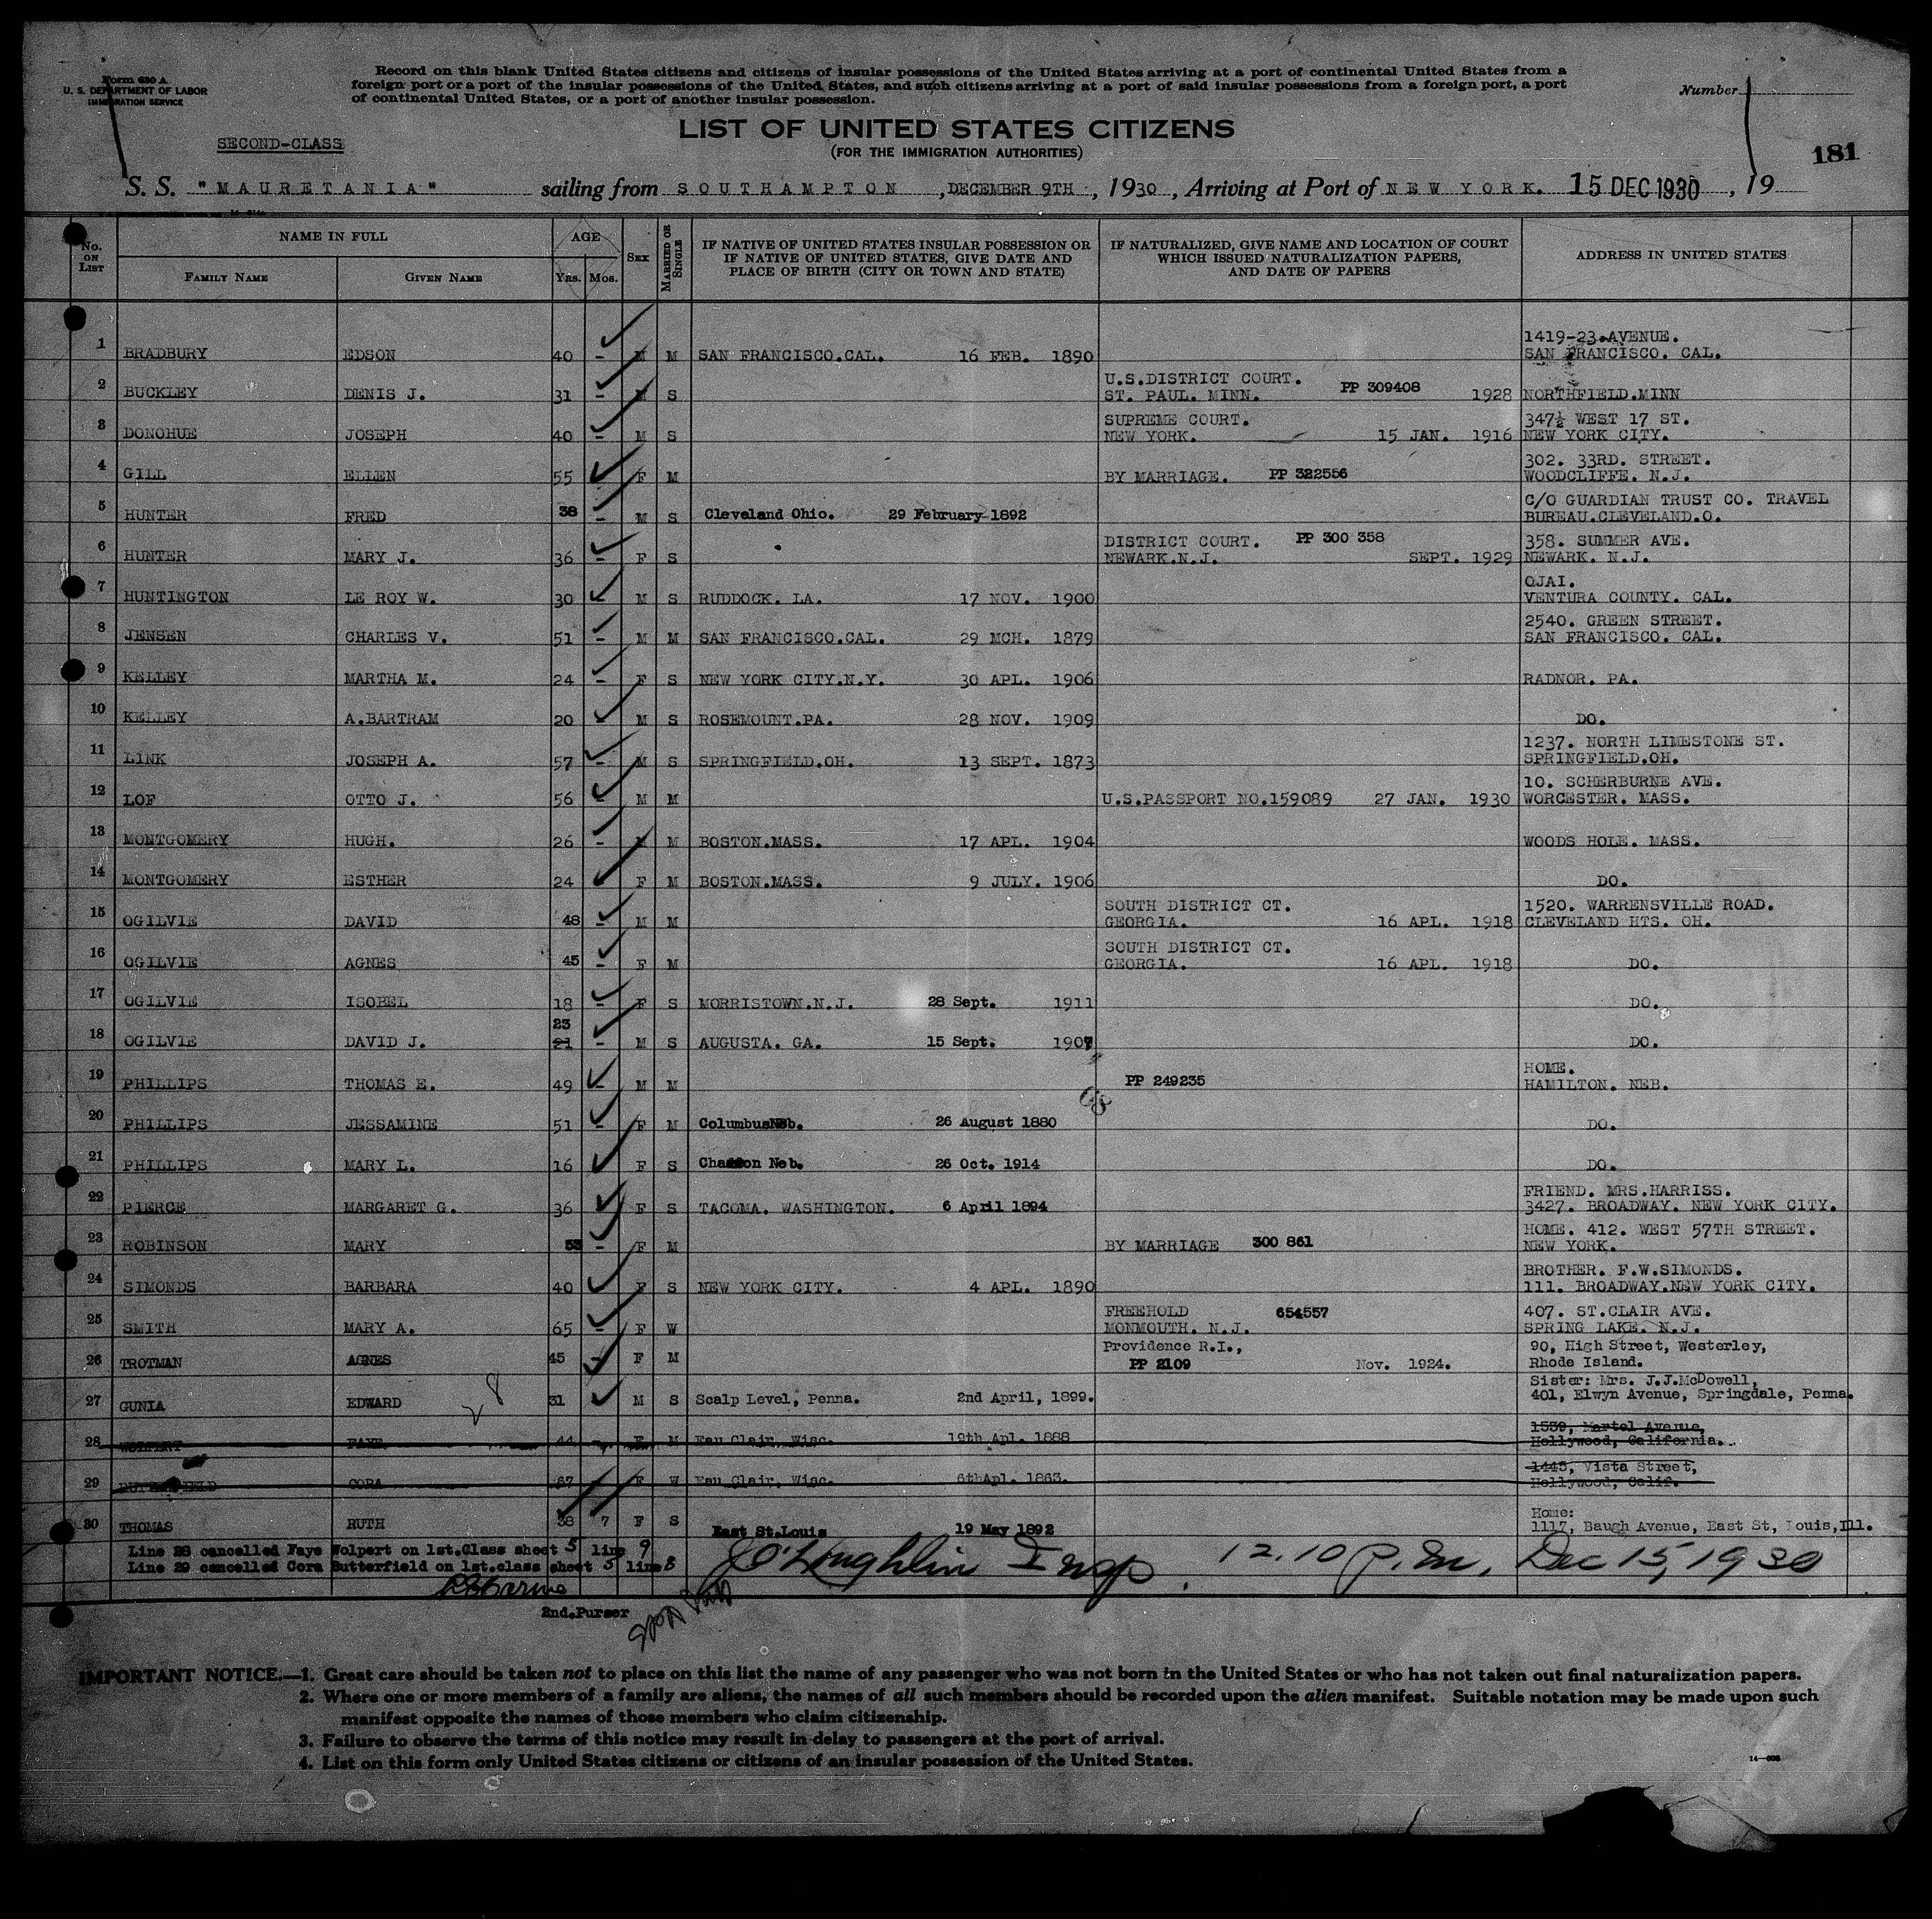 Form 630 A
U. S. DEPARTMENT OF LABOR
IMMIGRATION SERVICE
Record on this blank United States citizens and citizens of insular possessions of the United States arriving at a port of continental United States from a
foreign port or a port of the insular possessions of the United States, and such citizens arriving at a port of said insular possessions from a foreign port, a port
of continental United States, or a port of another insular possession.
Number
LIST OF UNITED STATES CITIZENS
(FOR THE IMMIGRATION AUTHORITIES)
SECOND-CLASS
181
S. S. "MAURETANIA" sailing from SOUTHAMPTON, DECEMBER 9TH, 1930, Arriving at Port of NEW YORK. 15 DEC 1930, 19
No. ON LIST
NAME IN FULL
FAMILY NAME GIVEN NAME
AGE
YRS. MOS.
SEX
MARRIED OR SINGLE
IF NATIVE OF UNITED STATES INSULAR POSSESSION OR
IF NATIVE OF UNITED STATES, GIVE DATE AND
PLACE OF BIRTH (CITY OR TOWN AND STATE)
IF NATURALIZED, GIVE NAME AND LOCATION OF COURT
WHICH ISSUED NATURALIZATION PAPERS,
AND DATE OF PAPERS
ADDRESS IN UNITED STATES
1419-23.AVENUE.
1 BRADBURY EDSON 40 - M M SAN FRANCISCO.CAL. 16 FEB. 1890 SAN FRANCISCO. CAL.
U.S.DISTRICT COURT. PP 309408
2 BUCKLEY DENIS J. 31 - M S ST. PAUL. MINN. 1928 NORTHFIELD.MINN
SUPREME COURT. 347½ WEST 17 ST.
3 DONOHUE JOSEPH 40 - M S NEW YORK. 15 JAN. 1916 NEW YORK CITY.
302. 33RD. STREET.
4 GILL ELLEN 55 F M BY MARRIAGE. PP 322556 WOODCLIFFE. N.J.
C/O GUARDIAN TRUST CO. TRAVEL
5 HUNTER FRED 38 - M S Cleveland Ohio. 29 February 1892 BUREAU.CLEVELAND.O.
DISTRICT COURT. PP 300 358 358. SUMMER AVE.
6 HUNTER MARY J. 36 - F S NEWARK.N.J. SEPT. 1929 NEWARK. N.J.
OJAI.
7 HUNTINGTON LE ROY W. 30 - M S RUDDOCK. LA. 17 NOV. 1900 VENTURA COUNTY. CAL.
2540. GREEN STREET.
8 JENSEN CHARLES V. 51 - M M SAN FRANCISCO.CAL. 29 MCH. 1879 SAN FRANCISCO. CAL.
9 KELLEY MARTHA M. 24 - F S NEW YORK CITY.N.Y. 30 APL. 1906 RADNOR. PA.
10 KELLEY A.BARTRAM 20 - M S ROSEMOUNT.PA. 28 NOV. 1909 DO.
1237. NORTH LIMESTONE ST.
11 LINK JOSEPH A. 57 - M S SPRINGFIELD.OH. 13 SEPT. 1873 SPRINGFIELD.OH.
10. SCHERBURNE AVE.
12 LOF OTTO J. 56 - M M U.S.PASSPORT NO.159089 27 JAN. 1930 WORCESTER. MASS.
13 MONTGOMERY HUGH. 26 - M M BOSTON.MASS. 17 APL. 1904 WOODS HOLE. MASS.
14 MONTGOMERY ESTHER 24 F M BOSTON.MASS. 9 JULY. 1906 DO.
SOUTH DISTRICT CT. 1520. WARRENSVILLE ROAD.
15 OGILVIE DAVID 48 - M M GEORGIA. 16 APL. 1918 CLEVELAND HTS. OH.
SOUTH DISTRICT CT.
16 OGILVIE AGNES 45 - F M GEORGIA. 16 APL. 1918 DO.
17 OGILVIE ISOBEL 18 - F S MORRISTOWN.N.J. 28 Sept. 1911 DO.
23
18 OGILVIE DAVID J. 21 - M S AUGUSTA. GA. 15 Sept. 1907 DO.
HOME.
19 PHILLIPS THOMAS E. 49 - M M PP 249235 HAMILTON. NEB.
20 PHILLIPS JESSAMINE 51 - F M Columbus Neb. 26 August 1880 DO.
21 PHILLIPS MARY L. 16 F S Neb. 26 Oct. 1914 DO.
FRIEND. MRS.HARRISS.
22 PIERCE MARGARET G. 36 - F S TACOMA. WASHINGTON. 6 April 1894 3427. BROADWAY. NEW YORK CITY.
HOME. 412. WEST 57TH STREET.
23 ROBINSON MARY 53 - F M BY MARRIAGE 300 861 NEW YORK.
BROTHER. F.W.SIMONDS.
24 SIMONDS BARBARA 40 F S NEW YORK CITY. 4 APL. 1890 111. BROADWAY.NEW YORK CITY.
FREEHOLD 654557 407. ST.CLAIR AVE.
25 SMITH MARY A. 65 - F W MONMOUTH. N.J. SPRING LAKE. N.J.
Providence R.I., 90, High Street, Westerley,
26 TROTMAN AGNES 45 - F M PP 2109 Nov. 1924. Rhode Island.
Sister: Mrs. J.J.McDowell,
27 GUNIA EDWARD 31 M S Scalp Level, Penna. 2nd April, 1899. 401, Elwyn Avenue, Springdale, Penna.
1539, Martel Avenue,
28 WOLPERT FAYE 44 - F M Eau Clair, Wisc. 19th Apl. 1888 Hollywood, California.
1445, Vista Street,
29 BUTTERFIELD CORA 67 F W Eau Clair, Wisc. 6thApl. 1863. Hollywood, Calif.
Home:
30 THOMAS RUTH 38 7 F S East St.Louis 19 May 1892 1117, Baugh Avenue, East St, Louis,Ill.
Line 28 cancelled Faye Wolpert on 1st.Class sheet 5 line 9
Line 29 cancelled Cora Butterfield on 1st.class sheet 5 line 8
J O'Loughlin Insp. 12.10 P.M. Dec 15, 1930
2nd.Purser
IMPORTANT NOTICE.—1. Great care should be taken not to place on this list the name of any passenger who was not born in the United States or who has not taken out final naturalization papers.
2. Where one or more members of a family are aliens, the names of all such members should be recorded upon the alien manifest. Suitable notation may be made upon such
manifest opposite the names of those members who claim citizenship.
3. Failure to observe the terms of this notice may result in delay to passengers at the port of arrival.
4. List on this form only United States citizens or citizens of an insular possession of the United States.